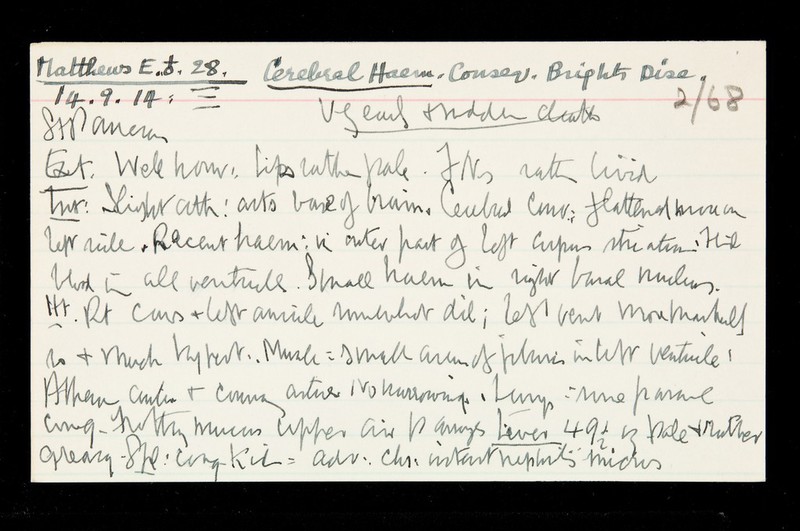 Matthews E. 28. Cerebral Haem. Conseq. Brights Dise.
14.9.14: 2/68
V early sudden death
St Pancras
Ext. Well nour: Lips rather pale. FNs rather livid
Int: Slight ath: arts base of brain. Cerebral Conv: flattened more on
left side. Recent haem: in outer part of left corpus striatum: Fluid
blood in all ventricles. Small haem in right basal nucleus.
Ht. Rt cavs + left auricle somewhat dil; left vent more markedly
so + much hypert.. Muscle = small areas of fibrosis in left ventricle:
Atheroma aorta + coronary arteries No narrowing. Lungs =
cong - frothy mucus upper air passages Liver 49½ oz pale + rather
greasy - Spl: cong Kid = adv: chr: interst nephritis micros